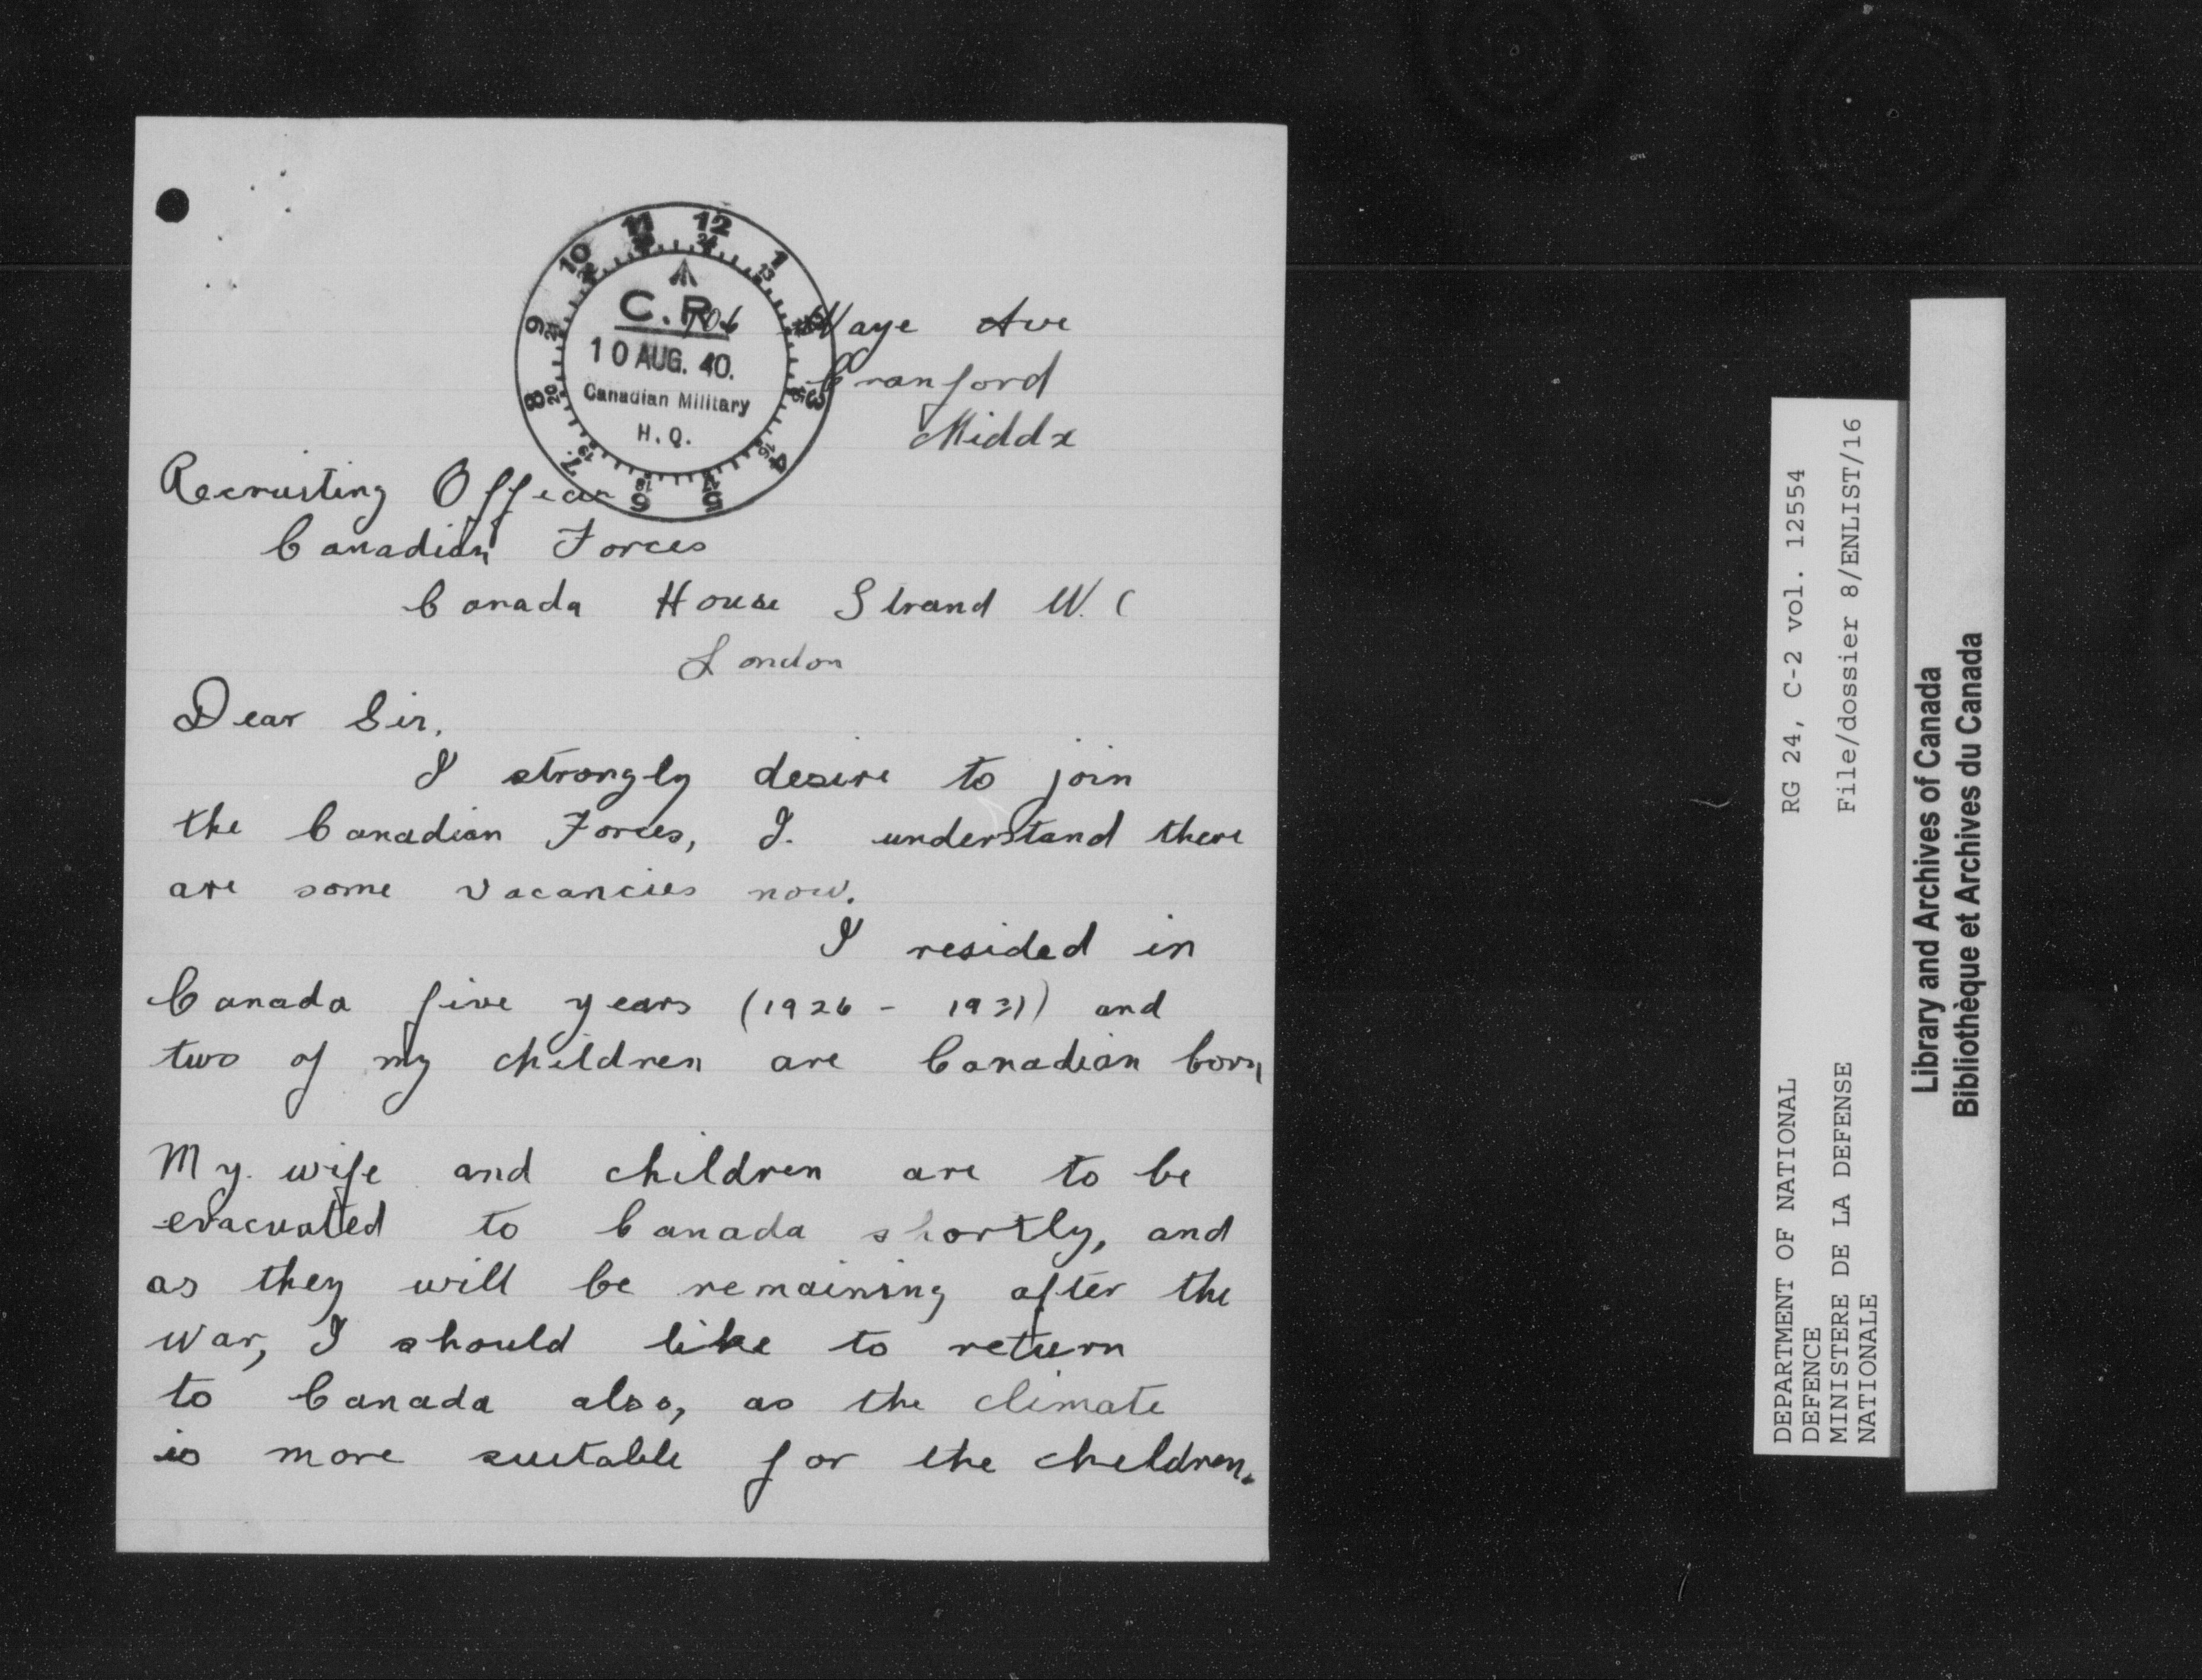 11 12 1 3 4 5 6 7 8 9 10
C.R
10 AUG. 40.
Canadian Military
H.Q.
106 Waye Ave
Cranford
Middx
Recruiting Officer
Canadian Forces
Canada House Strand W.C
London
Dear Sir,
I strongly desire to join
the Canadian Forces, I. understand there
are some vacancies now.
I resided in
Canada five years (1926 - 1931) and
two of my children are Canadian born
My. wife and children are to be
evacuated to Canada shortly, and
as they will be remaining after the
war, I should like to return
to Canada also, as the climate
is more suitable for the children.
RG 24, C-2 vol. 12554
File/dossier 8/ENLIST/16
DEPARTMENT OF NATIONAL
DEFENCE
MINISTERE DE LA DEFENSE
NATIONALE
Library and Archives of Canada
Bibliothèque et Archives du Canada